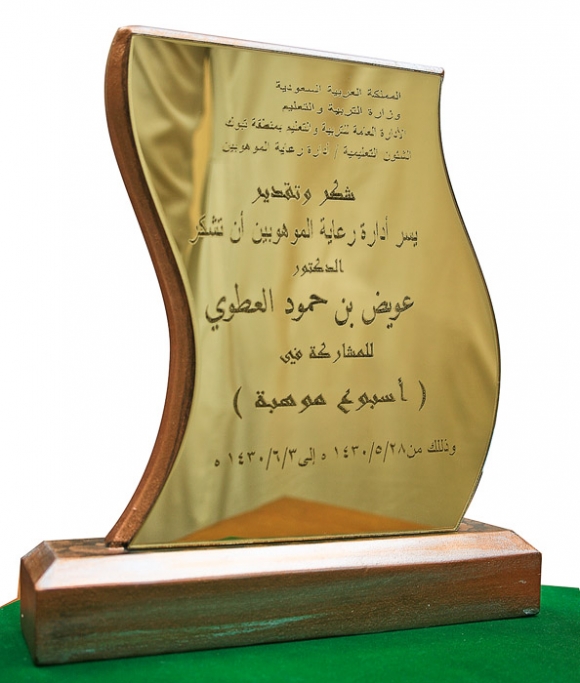 المملكة العربية السعودية
وزارة التربية والتعليم
الأدارة العامة للتربية والتعليم بمنطقة تبوك
الشئون التعليمية / أدارة رعاية الموهوبين
شكر وتقدير
يسر أدارة رعاية الموهوبين أن تشكر
الدكتور
عويض بن حمود العطوي
للمشاركة في
( أسبوع موهبة )
وذلك من ١٤٣٠/٥/٢٨ ه إلى ١٤٣٠/٦/٣ ه